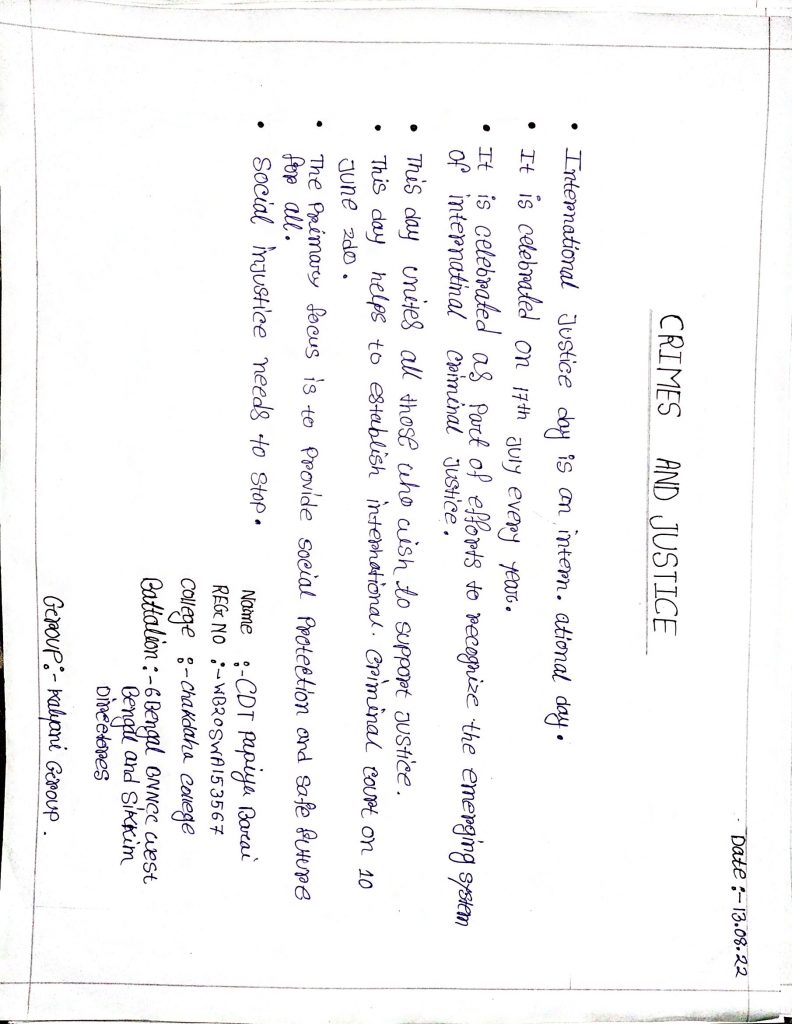 Date :- 13.08.22
CRIMES AND JUSTICE
• International Justice day is an intern. ational day.
• It is celebrated on 17th July every year.
• It is celebrated as part of efforts to recognize the emerging system
of internatinal criminal justice.
• This day unites all those who wish to support justice.
• This day helps to establish international. criminal court on 10
June 2do.
• The primary focus is to provide social protection and safe future
for all.
• Social injustice needs to stop.
Name :- CDT Papiya Barai
REG NO :- WB20SWA153567
College :- Chakdaha College
Battalion :- 6 Bengal BNNCC West
Bengal and Sikkim
Directores
Group :- Kalyani Group.